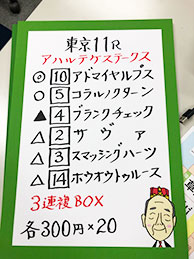 東京11R
アハルテケステークス
◎ 10 アドマイヤルプス
○ 5 コラルノクターン
▲ 4 ブランクチェック
△ 2 サヴァ
△ 3 スマッシングハーツ
△ 14 ホウオウトゥルース
3連複BOX
各300円×20